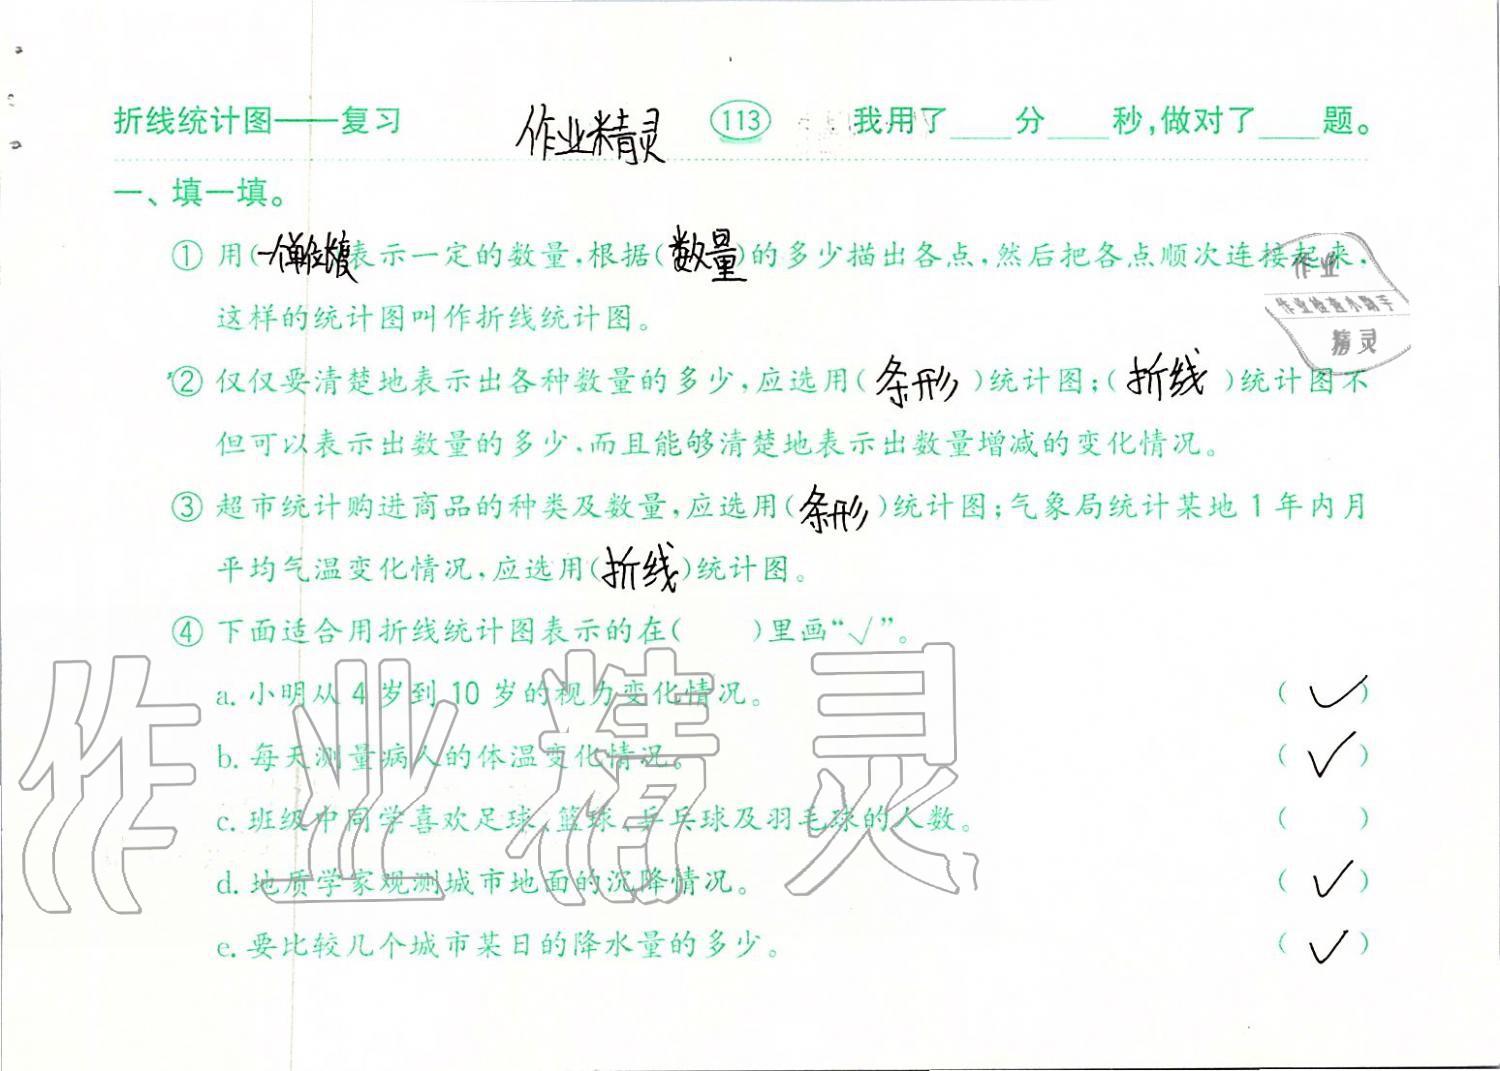 折线统计图——复习 作业精灵 113 我用了____分____秒,做对了____题。
一、填一填。
① 用(一个单位长度)表示一定的数量,根据(数量)的多少描出各点,然后把各点顺次连接起来,
作业
作业检查小助手
精灵
这样的统计图叫作折线统计图。
② 仅仅要清楚地表示出各种数量的多少,应选用(条形)统计图;(折线)统计图不
但可以表示出数量的多少,而且能够清楚地表示出数量增减的变化情况。
③ 超市统计购进商品的种类及数量,应选用(条形)统计图;气象局统计某地1年内月
平均气温变化情况,应选用(折线)统计图。
④ 下面适合用折线统计图表示的在( )里画“√”。
a. 小明从4岁到10岁的视力变化情况。 (✓)
b. 每天测量病人的体温变化情况。 (✓)
作业精灵
c. 班级中同学喜欢足球、篮球、乒乓球及羽毛球的人数。 ( )
d. 地质学家观测城市地面的沉降情况。 (✓)
e. 要比较几个城市某日的降水量的多少。 (✓)